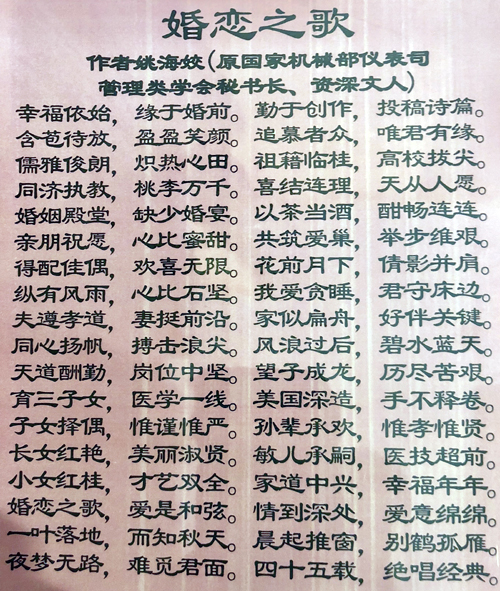 婚恋之歌
作者姚海姣(原国家机械部仪表司
管理类学会秘书长、资深文人)
幸福依始，缘于婚前。勤于创作，投稿诗篇。
含苞待放，盈盈笑颜。追慕者众，唯君有缘。
儒雅俊朗，炽热心田。祖藉临桂，高校拔尖。
同济执教，桃李万千。喜结连理，天从人愿。
婚姻殿堂，缺少婚宴。以茶当酒，酣畅连连。
亲朋祝愿，心比蜜甜。共筑爱巢，举步维艰。
得配佳偶，欢喜无限。花前月下，倩影并肩。
纵有风雨，心比石坚。我爱贪睡，君守床边。
夫遵孝道，妻挺前沿。家似扁舟，好伴关键。
同心扬帆，搏击浪尖。风浪过后，碧水蓝天。
天道酬勤，岗位中坚。望子成龙，历尽苦艰。
育三子女，医学一线。美国深造，手不释卷。
子女择偶，惟谨惟严。孙辈承欢，惟孝惟贤。
长女红艳，美丽淑贤。敏儿承嗣，医技超前。
小女红桂，才艺双全。家道中兴，幸福年年。
婚恋之歌，爱是和弦。情到深处，爱意绵绵。
一叶落地，而知秋天。晨起推窗，别鹤孤雁。
夜梦无路，难觅君面。四十五载，绝唱经典。